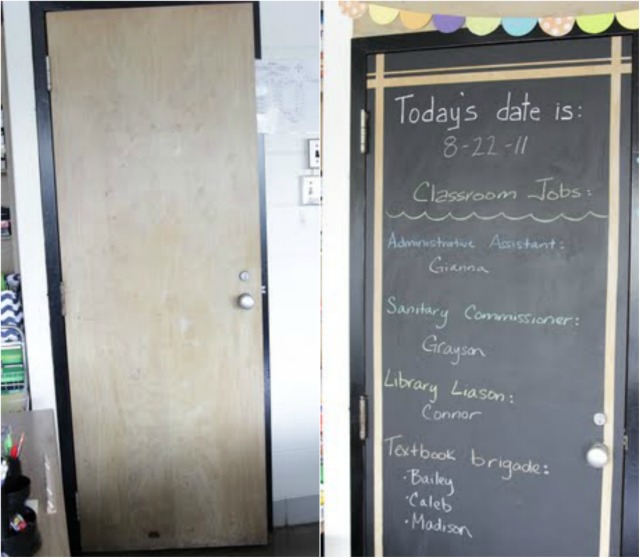 Today's date is:
8-22-11
Classroom Jobs:
Administrative Assistant:
Gianna
Sanitary Commissioner:
Grayson
Library Liason:
Connor
Textbook brigade:
· Bailey
· Caleb
· Madison